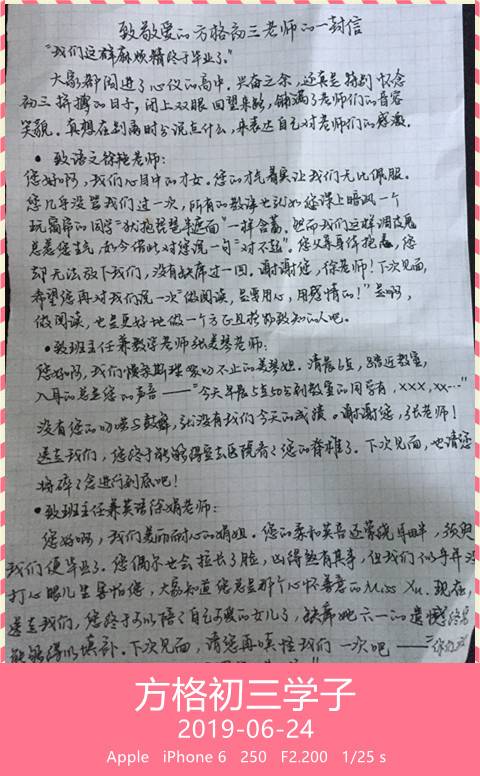 致敬爱的方格初三老师的一封信
“我们这群麻烦精终于毕业了。”
大家都闯进了心仪的高中。兴奋之余,还真是特别怀念
初三拼搏的日子,闭上双眼回望来路,铺满了老师们的音容
笑貌。真想在别离时分说点什么,来表达自己对老师们的感激。
• 致语文徐艳老师:
您好啊,我们心目中的才女。您的才气着实让我们无比佩服。
您几乎没骂我们过一次,所有的教诲也就如您课上暗讽一个
玩窗帘的同学“犹抱琵琶半遮面”一样含蓄。然而我们这样调皮鬼
总惹您生气,如今借此对您说一句“对不起”。您父亲身体抱恙,您
却无法放下我们,没有缺席过一回。谢谢您,徐老师!下次见面,
希望您再对我们说一次“做阅读,是要用心,用感情的!”是啊,
做阅读,也是更好地做一个方正且格物致知的人吧。
• 致班主任兼数学老师张美琴老师:
您好啊,我们慷慨斯理 叨不止的美琴姐。清晨6点,踏近教室,
入耳的总是您的声音——“今天早晨5点50分到教室的同学有,xxx,xx…”
没有您的叨唠与鼓舞,就没有我们今天的成绩。谢谢您,张老师!
送走我们,您终于能够得空去医院看看您的脊椎了。下次见面,也请您
将碎碎念进行到底吧!
• 致班主任兼英语徐娟老师:
您好啊,我们美丽耐心的娟姐。您的柔和英音还萦绕耳畔,
我们便毕业了。您偶尔也会拉长了脸,凶得煞有其事,但我们似乎并没
打心眼儿里害怕您,大家知道您总是那个心怀善意的Miss Xu。现在,
送走我们,您终于可以陪了自己可爱的女儿了,缺席她六一的遗憾终是
能够得以填补。下次见面,请您再嗔怪我们一次吧——“你们
方格初三学子
2019-06-24
Apple iPhone 6 250 F2.200 1/25 s